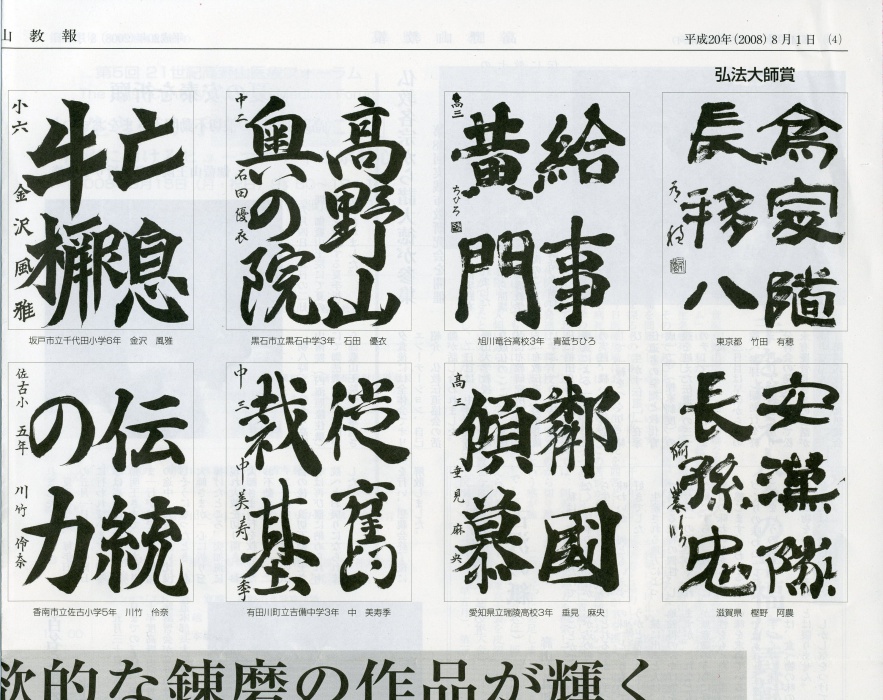 山教報
平成20年(2008)8月1日 (4)
弘法大師賞
為家隨
長孫八
東京都 竹田 有穂
給事
黄門
高三 ちひろ
旭川竜谷高校3年 青砥ちひろ
高野山
奥の院
中二 石田優衣
黒石市立黒石中学3年 石田 優衣
亡息
小六 金沢風雅
坂戸市立千代田小学6年 金沢 風雅
安漢隊
長孫忠
滋賀県 樫野 阿農
鄰國
傾慕
高三 垂見麻央
愛知県立瑞陵高校3年 垂見 麻央
従舊
栽基
中三 中美寿季
有田川町立吉備中学3年 中 美寿季
伝統
の力
佐古小 五年 川竹伶奈
香南市立佐古小学5年 川竹 伶奈
欲的な錬磨の作品が輝く